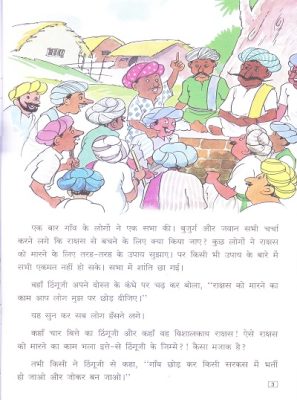 एक बार गाँव के लोगों ने एक सभा की। बुजुर्ग और जवान सभी चर्चा
करने लगे कि राक्षस से बचने के लिए क्या किया जाए? कुछ लोगों ने राक्षस
को मारने के लिए तरह-तरह के उपाय सुझाए। पर किसी भी उपाय के बारे में
सभी एकमत नहीं हो सके। सभा में शांति छा गई।
वहाँ ठिंगूजी अपने दोस्त के कंधे पर चढ़ कर बोला, "राक्षस को मारने का
काम आप लोग मुझ पर छोड़ दीजिए।"
यह सुन कर सब लोग हँसने लगे।
कहाँ चार बित्ते का ठिंगूजी और कहाँ वह विशालकाय राक्षस! ऐसे राक्षस
को मारने का काम भला इत्ते-से ठिंगूजी के जिम्मे?! कैसा मजाक है?
तभी किसी ने ठिंगूजी से कहा, "गाँव छोड़ कर किसी सरकस में भर्ती
हो जाओ और जोकर बन जाओ।"
3